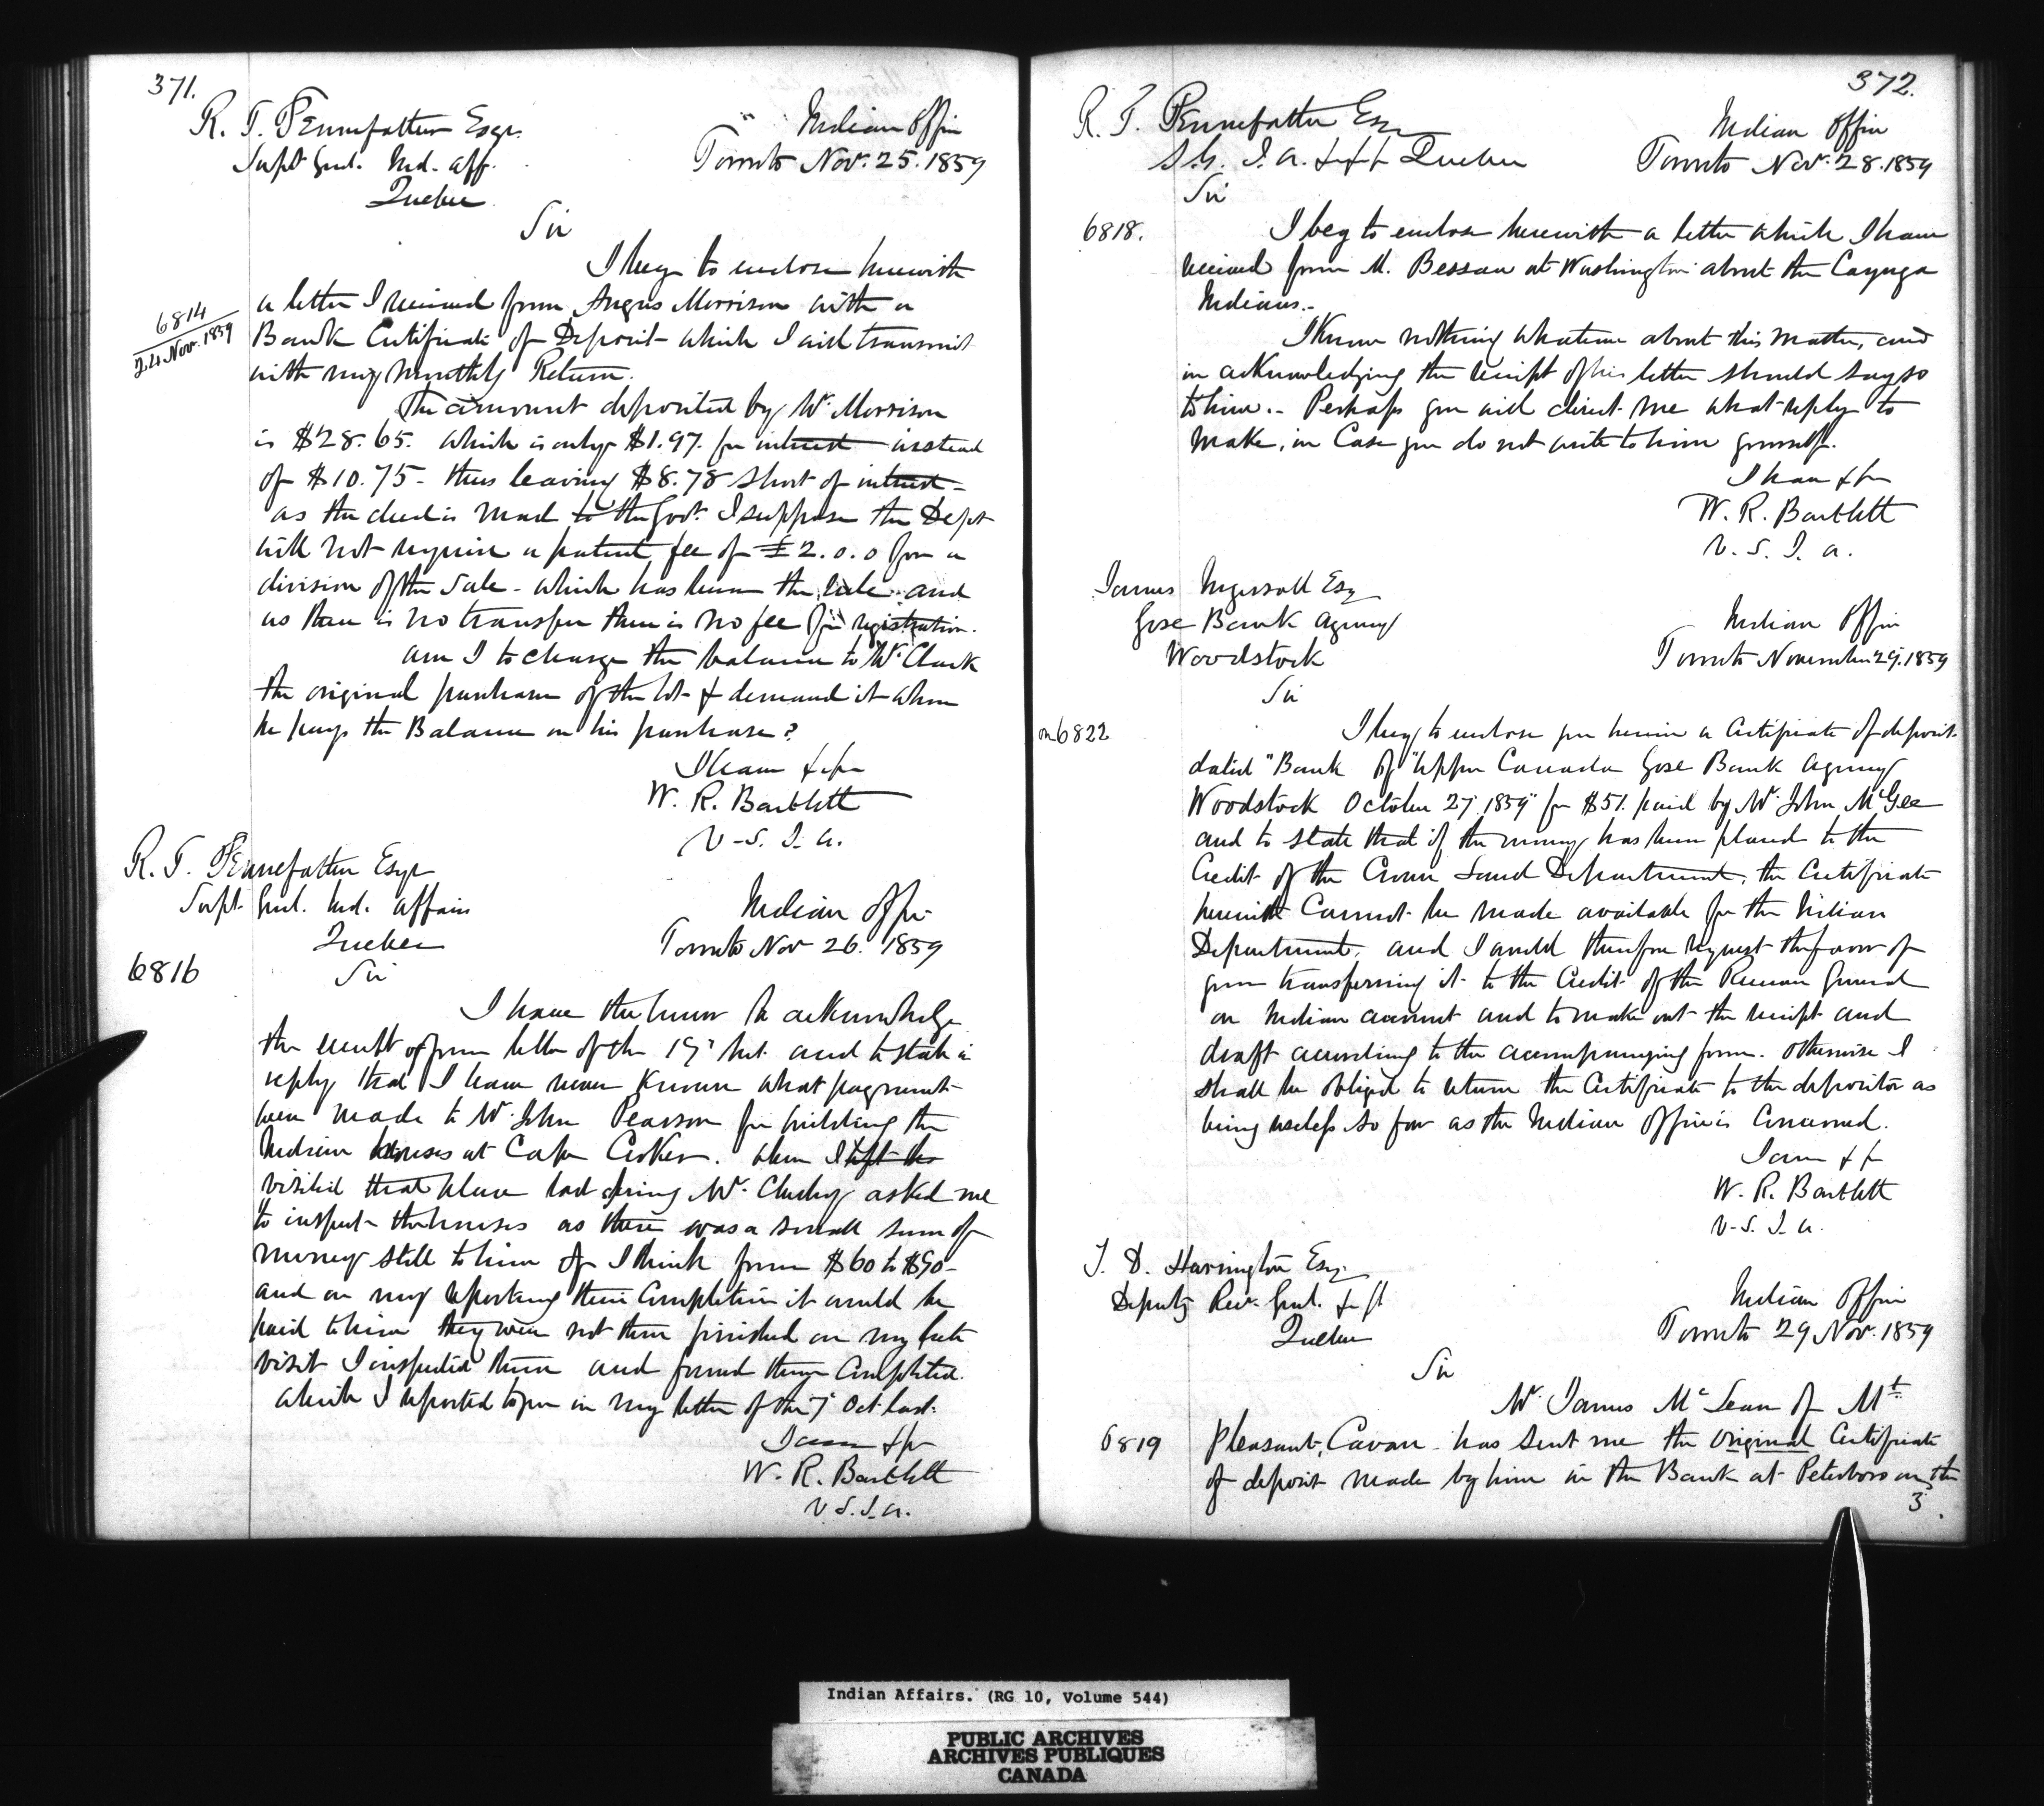 371.
R. T. Pennefather Esqr.
Supt Genl. Ind. Aff.
Quebec
Indian Office
Toronto Nov. 25. 1859
Sir
I beg to enclose herewith
6814
24 Nov. 1859
a letter I received from Angus Morrison with a
Bank Certificate of Deposit which I will transmit
with my monthly Return.
The amount deposited by Mr. Morrison
is $28.65. which is only $1.97. for interest instead
of $10.75 - thus leaving $8.78 short of interest -
as the deed is made to the Govt. I suppose the Dept
will not require a patent fee of £2.0.0 for a
division of the Sale - which has been the rule and
as there is no transfer there is no fee for registration.
am I to charge the balance to Mr. Clark
the original purchaser of the lot & demand it when
he pays the Balance on his purchase?
I have &c
W. R. Bartlett
V-S. I. A.
R. T. Pennefather Esqr
Supt. Genl. Ind. Affairs
Quebec
Indian Office
Toronto Nov 26. 1859
6816
Sir
I have the honor to acknowledge
the receipt of your letter of the 19th Inst. and to state in
reply that I have never known what payments
were made to Mr. John Pearson for building the
Indian houses at Cape Croker. when I left the
visited that place last spring Mr. Cluxley asked me
to inspect the houses as there was a small sum of
money still to him of I think from $60 to $90 -
and on my reporting their Completion it would be
paid to him they were not then finished on my late
visit I inspected them and found them Completed.
which I reported to you in my letter of the 7th Oct. last.
I am &c
W. R. Bartlett
V. S. I. A.
372.
R. T. Pennefather Esqr
S. G. I. A. &c &c Quebec
Indian Office
Toronto Nov. 28. 1859
Sir
6818.
I beg to enclose herewith a letter which I have
received from M. Bessau at Washington about the Cayuga
Indians.-
I know nothing whatever about this matter, and
in acknowledging the receipt of his letter should say so
to him. - Perhaps you will direct me what reply to
make, in Case you do not write to him yourself.
I have &c
W. R. Bartlett
V. S. I. A.
James Ingersoll Esq
Gore Bank Agency
Woodstock
Indian Office
Toronto November 29. 1859
Sir
on 6822
I beg to enclose you herein a Certificate of deposit
dated "Bank of "Upper Canada Gore Bank Agency
Woodstock October 27. 1859" for $51. paid by Mr. John McGee
and to state that if the money has been placed to the
Credit of the Crown Land Department, the Certificate
herewith Cannot be made available for the Indian
Department, and I would therefore request the favor of
your transferring it to the Credit of the Receiver General
on Indian account and to make out the receipt and
draft according to the accompanying form. Otherwise I
shall be obliged to return the Certificate to the depositor as
being useless so far as the Indian Office is Concerned.
I am &c
W. R. Bartlett
V-S. I. A.
T. D. Harrington Esq.
Deputy Rec. Genl. &c &c
Quebec
Indian Office
Toronto 29 Nov. 1859
Sir
Mr. James McLean of Mt.
6819
Pleasant, Cavan has sent me the original Certificate
of deposit made by him in the Bank at Peterboro on the
3
Indian Affairs. (RG 10, Volume 544)
PUBLIC ARCHIVES
ARCHIVES PUBLIQUES
CANADA